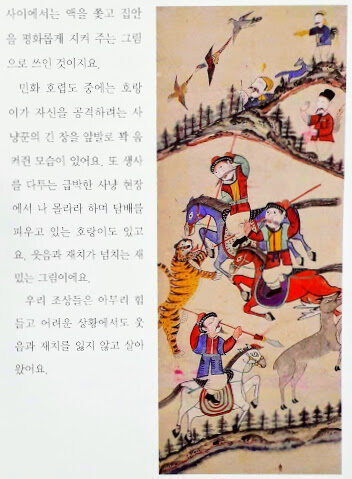 사이에서는 액을 쫓고 집안
을 평화롭게 지켜 주는 그림
으로 쓰인 것이지요.
민화 호렵도 중에는 호랑
이가 자신을 공격하려는 사
냥꾼의 긴 창을 앞발로 꽉 움
켜쥔 모습이 있어요. 또 생사
를 다투는 급박한 사냥 현장
에서 나 몰라라 하며 담배를
피우고 있는 호랑이도 있고
요. 웃음과 재치가 넘치는 재
밌는 그림이에요.
우리 조상들은 아무리 힘
들고 어려운 상황에서도 웃
음과 재치를 잃지 않고 살아
왔어요.